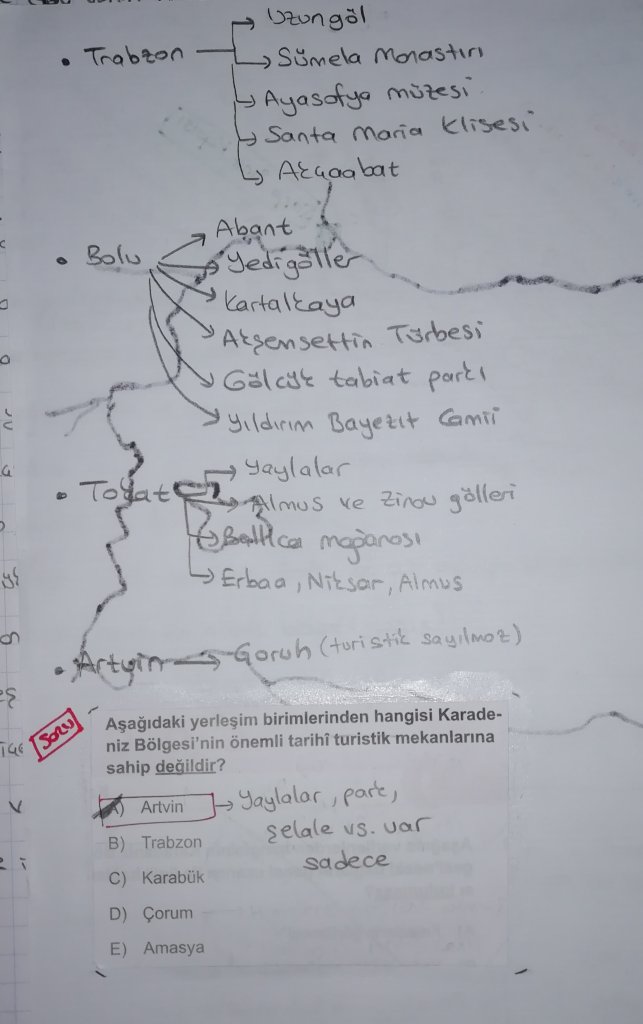 Uzungöl
• Trabzon
Sümela Monastırı
Ayasofya müzesi
Santa Maria Klisesi
Akçaabat
Abant
• Bolu
Yedigöller
Kartalkaya
Akşemsettin Türbesi
Gölcük tabiat parkı
Yıldırım Bayezıt Camii
Yaylalar
• Tokat
Almus ve Zinav gölleri
Ballıca mağarası
Erbaa, Niksar, Almus
• Artvin → Çoruh (turistik sayılmaz)
Soru
Aşağıdaki yerleşim birimlerinden hangisi Karade-
niz Bölgesi'nin önemli tarihî turistik mekanlarına
sahip değildir?
A) Artvin → Yaylalar, park,
şelale vs. var
B) Trabzon
sadece
C) Karabük
D) Çorum
E) Amasya